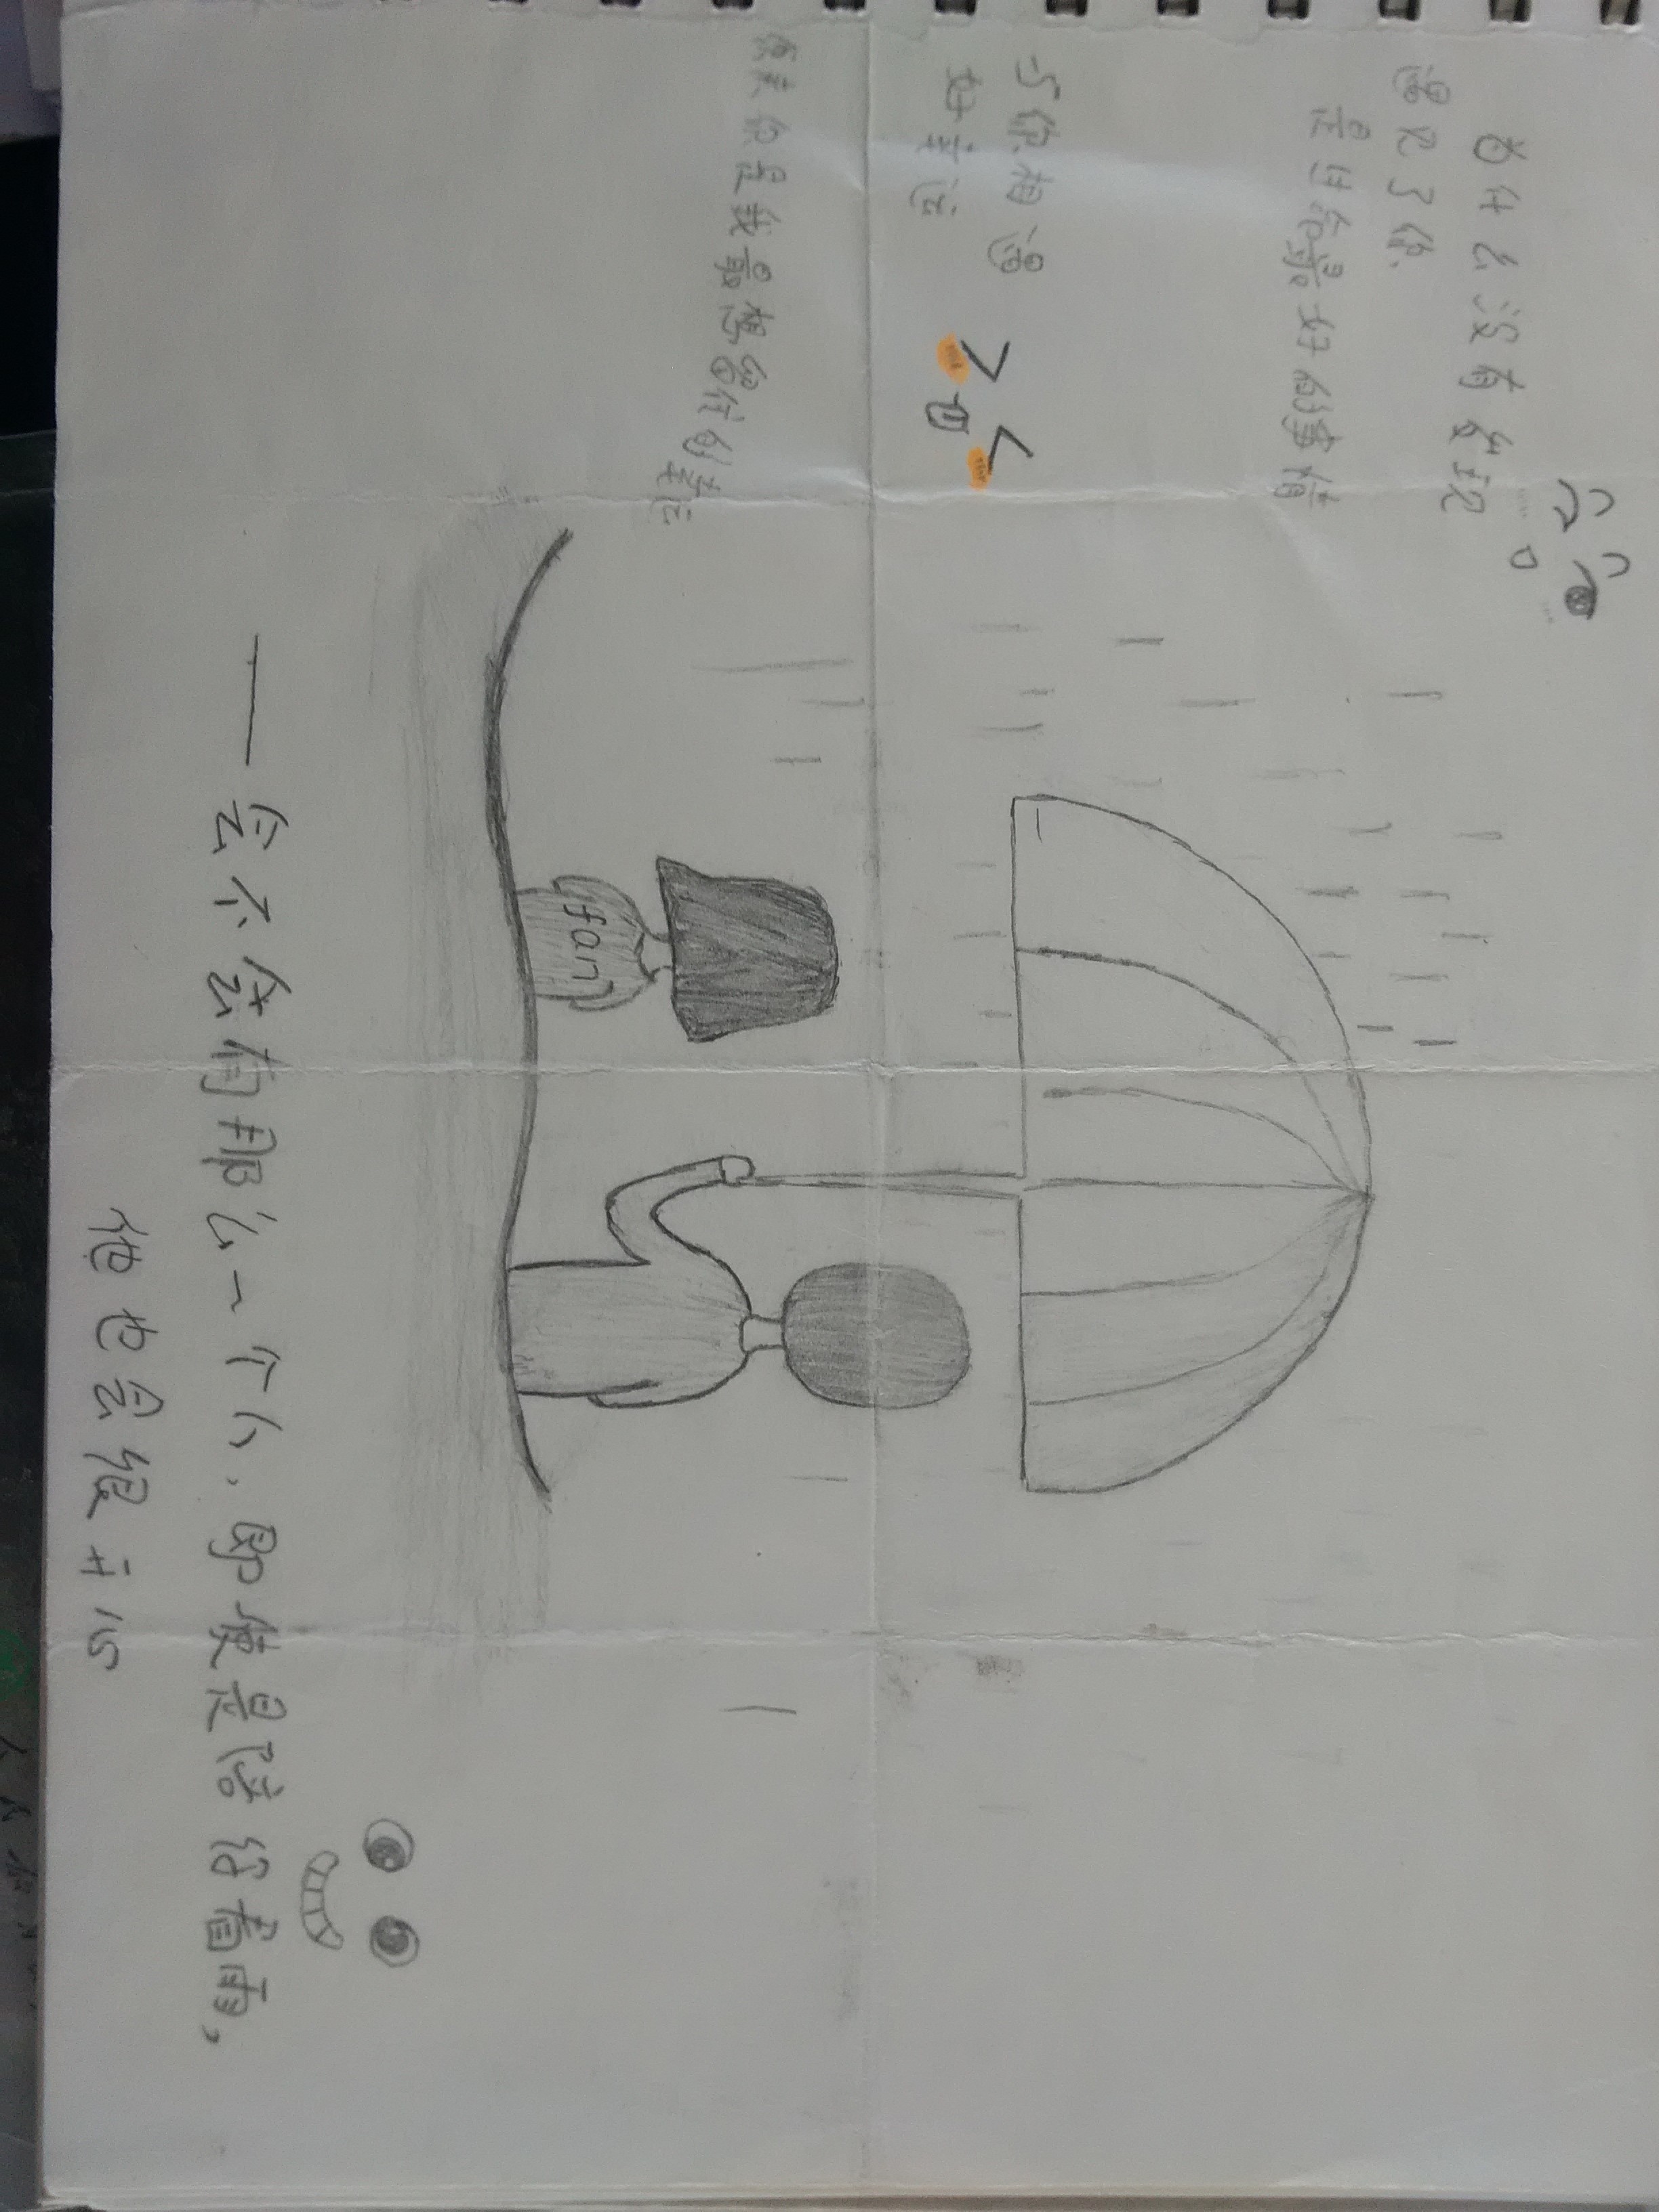 为什么没有发现
遇见了你
是生命最好的事情
与你相遇
好幸运
原来你是我最想留住的幸运
fan
——会不会有那么一个人，即使是陪你看雨，
他也会很开心